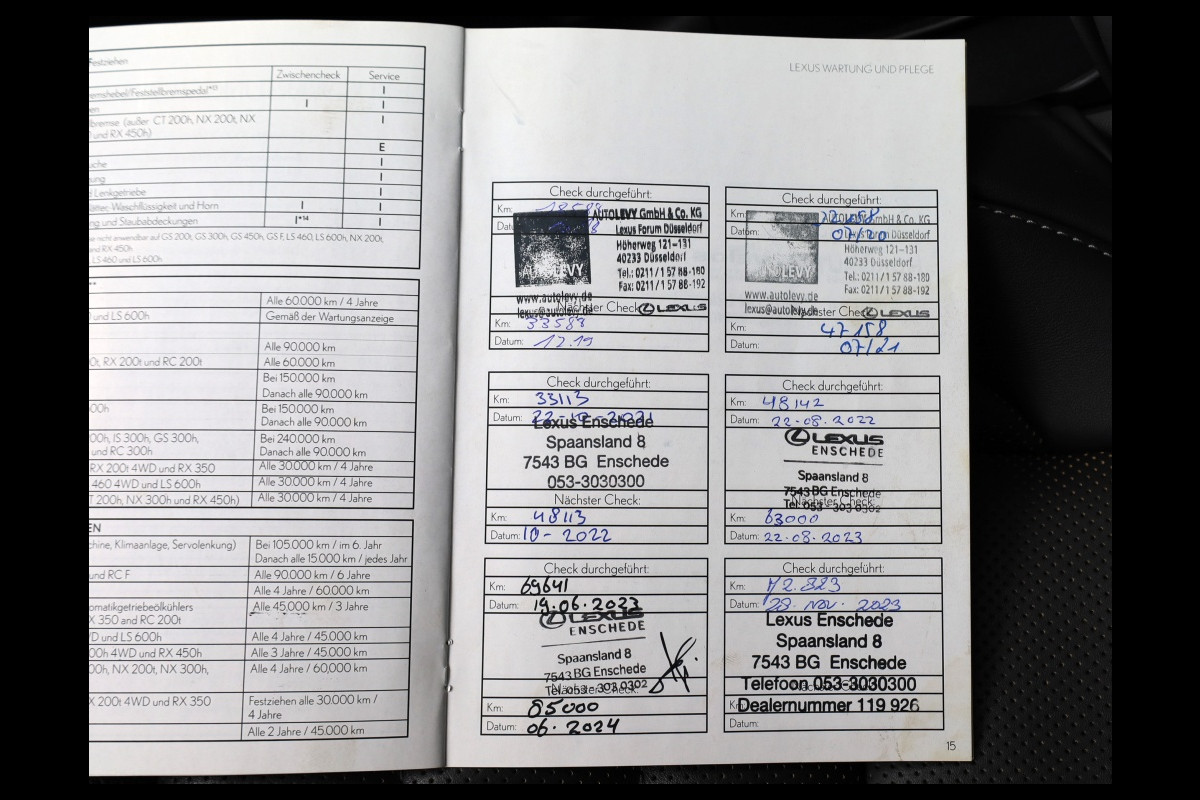 Festziehen
Zwischencheck Service
emshebel/Feststellbremspedal*¹³ I
en I I
bremse (außer CT 200h, NX 200t, NX I
und RX 450h)
E
uche I
ung I
d Lenkgetriebe I
lätter, Waschflüssigkeit und Horn I I
ng und Staubabdeckungen I*¹⁴ I
se nicht anwendbar auf GS 200t, GS 300h, GS 450h, GS F, LS 460, LS 600h, NX 200t,
and RX 450h
, LS 460 und LS 600h
Alle 60.000 km / 4 Jahre
und LS 600h Gemäß der Wartungsanzeige
Alle 90.000 km
0t, RX 200t und RC 200t Alle 60.000 km
Bei 150.000 km
Danach alle 90.000 km
00h Bei 150.000 km
Danach alle 90.000 km
00h, IS 300h, GS 300h, Bei 240.000 km
und RC 300h Danach alle 90.000 km
RX 200t 4WD und RX 350 Alle 30.000 km / 4 Jahre
460 4WD und LS 600h Alle 30.000 km / 4 Jahre
T 200h, NX 300h und RX 450h) Alle 30.000 km / 4 Jahre
EN
chine, Klimaanlage, Servolenkung) Bei 105.000 km / im 6. Jahr
Danach alle 15.000 km / jedes Jahr
und RC F Alle 90.000 km / 6 Jahre
Alle 4 Jahre / 60.000 km
omatikgetriebeölkühlers Alle 45.000 km / 3 Jahre
X 350 and RC 200t
WD und LS 600h Alle 4 Jahre / 45.000 km
00h 4WD und RX 450h Alle 3 Jahre / 45.000 km
00h, NX 200t, NX 300h, Alle 4 Jahre / 60,000 km
X 200t 4WD und RX 350 Festziehen alle 30.000 km /
4 Jahre
Alle 2 Jahre / 45.000 km
LEXUS WARTUNG UND PFLEGE
Check durchgeführt:
Km: 18588
Datum:
AUTOLEVY GmbH & Co. KG
Lexus Forum Düsseldorf
Höherweg 121-131
40233 Düsseldorf
AUTOLEVY
Tel.: 0211/1 57 88-180
Fax: 0211/1 57 88-192
www.autolevy.de
lexus@autolevy.de
Nächster Check:
LEXUS
Km: 33588
Datum: 12.19
Check durchgeführt:
Km:
Datum: 07/20
AUTOLEVY GmbH & Co. KG
Lexus Forum Düsseldorf
Höherweg 121-131
40233 Düsseldorf
AUTOLEVY
Tel.: 0211/1 57 88-180
Fax: 0211/1 57 88-192
www.autolevy.de
lexus@autolevy.de
Nächster Check:
LEXUS
Km: 47158
Datum: 07/21
Check durchgeführt:
Km: 33113
Datum: 22-10-2021
Lexus Enschede
Spaansland 8
7543 BG Enschede
053-3030300
Nächster Check:
Km: 48113
Datum: 10-2022
Check durchgeführt:
Km: 48142
Datum: 22-08-2022
LEXUS
ENSCHEDE
Spaansland 8
7543 BG Enschede
Tel. 053 - 303 0302
Nächster Check:
Km: 63000
Datum: 22-08-2023
Check durchgeführt:
Km: 69641
Datum: 19.06.2023
LEXUS
ENSCHEDE
Spaansland 8
7543 BG Enschede
Tel. 053 - 303 0302
Nächster Check:
Km: 85000
Datum: 06. 2024
Check durchgeführt:
Km: 72.823
Datum: 28. NOV. 2023
Lexus Enschede
Spaansland 8
7543 BG Enschede
Telefoon 053-3030300
Km: Dealernummer 119 926
Datum:
15